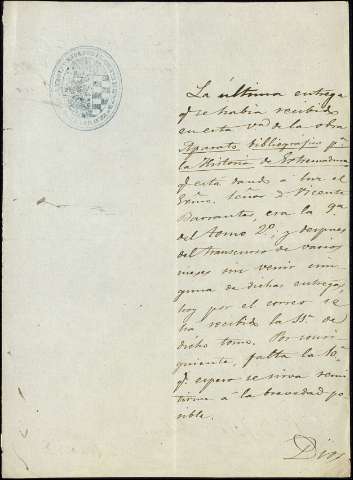 La última entrega
q. se había recibido
en esta de la obra
Aparato bibliográfico pa
la Historia de Extremadura
q. está dando á luz el
Excmo. Señor D. Vicente
Barrantes, era la 9a
del tomo 2o, y despues
del transcurso de varios
meses sin venir nin-
guna de dichas entregas,
hoy por el correo se
ha recibido la 11a de
dicho tomo. Por consi-
guiente, falta la 10a
q. espero se sirva remi-
tirme á la brevedad po-
sible.
Dios